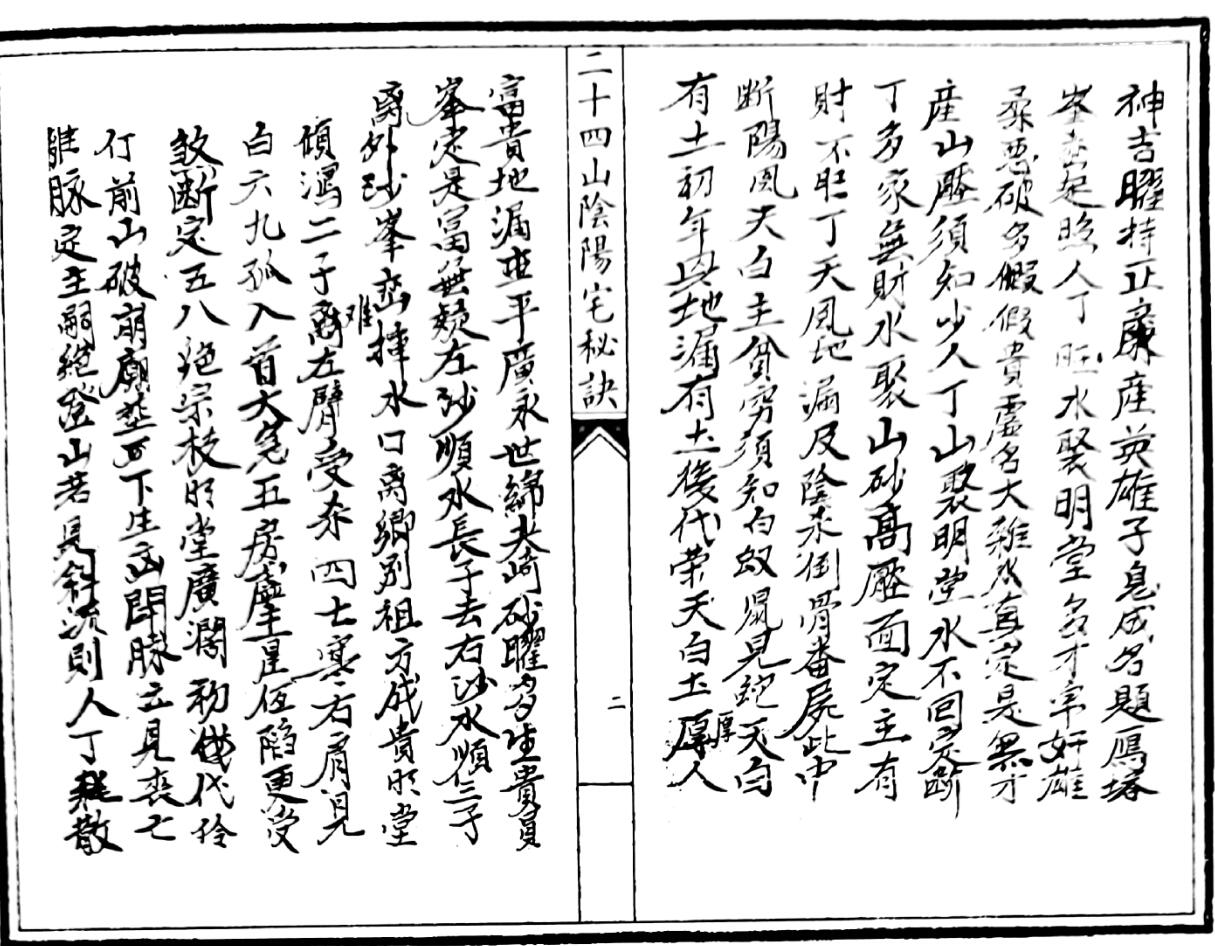 神吉曜持正廉産英雄子息成名題鴈塔
峯巒起照人丁旺水聚明堂多才宰奸雄
桑惡破多假假貴虛名大雜水真定是無才
産山壓須知少人丁山聚明堂水不回定斷
丁多家無財水聚山砂高壓面定主有
財不旺丁天風地漏及陰来倒骨番屍此中
断陽風夫白主貧窮須知白蚁鼠見蛇天白
有土初年凶地漏有土後代荣天白土厚人
厚
二十四山陰陽宅秘訣
二
富貴地漏世平廣永世綿夫崎砂曜多生貴員
峯定是富無疑左沙順水長子去右沙水順三子
离外沙峯巒揮水口离鄉別祖方成貴明堂
难
傾瀉二子离左臂受杀四七寒右肩見
白六九孤入首大

五房

星伍陷更受
煞断定五八绝宗枝明堂廣濶初代伶
仃前山破崩廟堂下生凶開脉立見喪亡
脈定主嗣絕登山若見斜流則人丁散